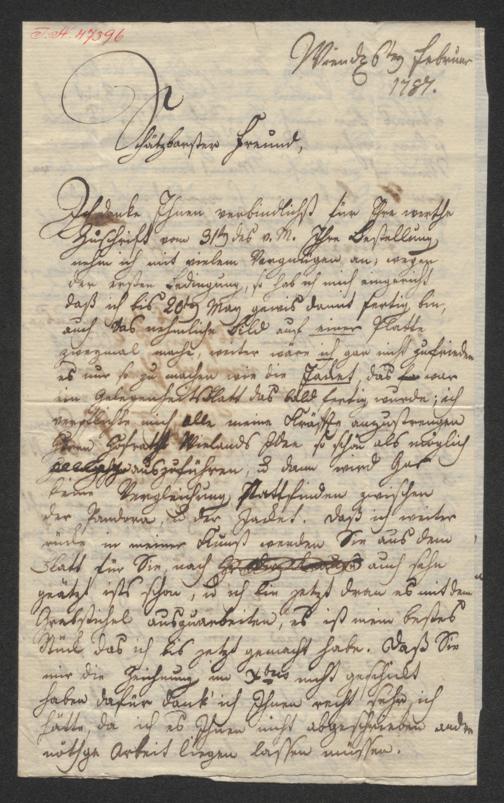 I.H. 47396
Wien d 6ten Februar
1787.
Schätzbarster Freund,
Ich danke Ihnen verbindlichst für Ihre werthe
Zuschrift vom 31t des v. M. Ihre Bestellung
nehm ich mit vielem Vergnügen an; wegen
der ersten Bedingung, so hab ich mich eingericht
daß ich bis 20t May gewis damit fertig bin,
auch das nehmliche Bild auf einer Platte
zweymal mache, weiter wäre ich gar nicht zufrieden
es nur so zu machen wie die Jacket, das war
ein Gelegenheits Blatt das bald fertig wurde; ich
verpflichte mich alle meine Kräffte anzustrengen
Herrn Hofrath Wielands Idee so schön als möglich
auszuführen, u dann wird Gar
keine Vergleichung stattfinden zwischen
der Pandora, u der Jacket. Daß ich weiter
rücke in meiner Kunst werden Sie aus dem
Blatt für Sie, nach auch sehn
geäzt ists schon, u ich bin jetzt dran es mit dem
Grabstichel auszuarbeiten, es ist mein bestes
Stück das ich bis jetzt gemacht habe. Daß Sie
mir die Zeichnung im Xbris nicht geschickt
haben dafür dank ich Ihnen recht sehr, ich
hätte, da ich es Ihnen nicht abgeschrieben andre
nöthge Arbeit liegen lassen müssen.